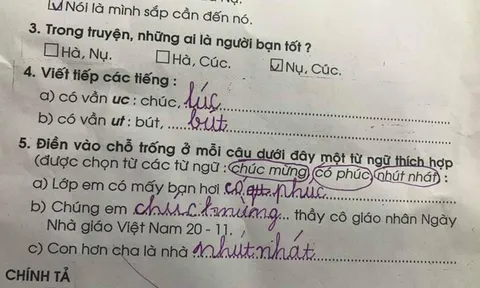 ☑ Nói là mình sắp cần đến nó.
3. Trong truyện, những ai là người bạn tốt ?
☐ Hà, Nụ. ☐ Hà, Cúc. ☑ Nụ, Cúc.
4. Viết tiếp các tiếng :
a) có vần uc : chúc, lúc
b) có vần ut : bút, bút
5. Điền vào chỗ trống ở mỗi câu dưới đây một từ ngữ thích hợp
(được chọn từ các từ ngữ : chúc mừng, có phúc, nhút nhát) :
a) Lớp em có mấy bạn hơi có phúc
b) Chúng em chúc mừng... thầy cô giáo nhân Ngày
Nhà giáo Việt Nam 20 - 11.
c) Con hơn cha là nhà nhút nhát
CHÍNH TẢ